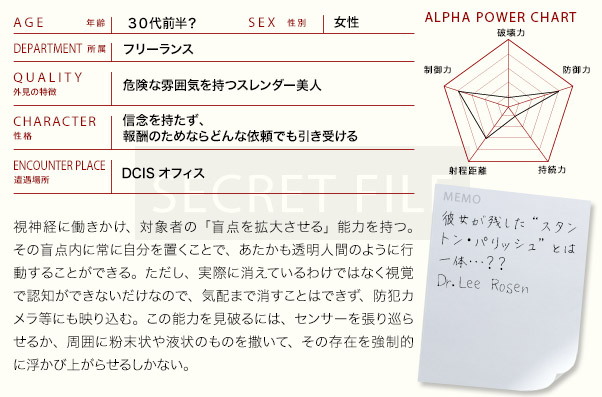 AGE 年齢 30代前半? SEX 性別 女性
DEPARTMENT 所属 フリーランス
QUALITY 外見の特徴 危険な雰囲気を持つスレンダー美人
CHARACTER 性格 信念を持たず、
報酬のためならどんな依頼でも引き受ける
ENCOUNTER PLACE 遭遇場所 DCIS オフィス
SECRET FILE
視神経に働きかけ、対象者の「盲点を拡大させる」能力を持つ。
その盲点内に常に自分を置くことで、あたかも透明人間のように行
動することができる。ただし、実際に消えているわけではなく視覚
で認知ができないだけなので、気配まで消すことはできず、防犯カ
メラ等にも映り込む。この能力を見破るには、センサーを張り巡ら
せるか、周囲に粉末状や液状のものを撒いて、その存在を強制的
に浮かび上がらせるしかない。
ALPHA POWER CHART
破壊力
制御力
防御力
射程距離
持続力
MEMO
彼女が残した“スタン
トン・パリッシュ”とは
一体…??
Dr. Lee Rosen